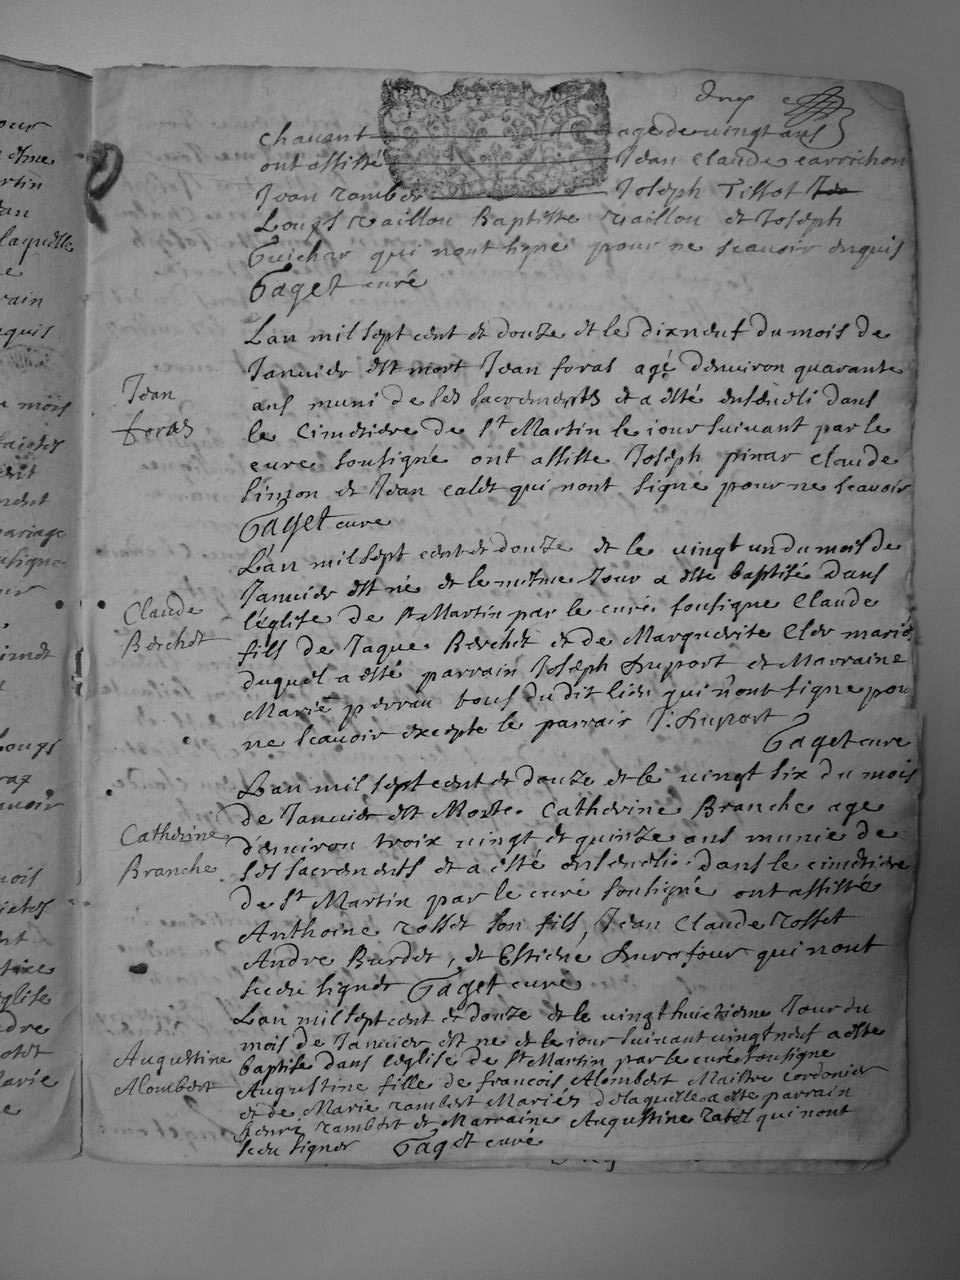 Chavant age de vingt ans
ont assisté Jean Claude carrichon
Jean rambert Joseph Tissot
Louys raillou Baptiste raillou et Joseph
Guichar qui nont signe pour ne scavoir enquis
Gaget curé
Lan mil sept cent et douze et le dixneuf du mois de
Janvier est mort Jean foras agé denviron quarante
ans muni de ses sacrements et a esté enseveli dans
le Cimetiere de St Martin le iour suivant par le
curé sousigné ont assisté Joseph pinar Claude
Simon et Jean calet qui nont signé pour ne scavoir
Gaget curé
Jean
foras
Lan mil sept cent et douze et le vingt un du mois de
Janvier est né et le mesme Jour a esté baptisé dans
l'Eglise de St Martin par le curé sousigne Claude
fils de Jaque Berchet et de Marguerite Cler mariés
duquel a esté parrain Joseph Duport et Marraine
Marie perrau tous du dit lieu qui nont signe pour
ne scavoir excepte le parrain J: Duport
Gaget curé
Claude
Berchet
Lan mil sept cent et douze et le vingt six du mois
de Janvier est Morte Catherine Branche age
denviron troix vingt et quinze ans munie de
ses sacrements et a esté ensevelie dans le cimetiere
de St Martin par le curé sousigné ont assisté
Anthoine rosset son fils, Jean Claude rosset
Andre Burdet, et Estiene Durafour qui nont
sceu signer Gaget curé
Catherine
Branche
Lan mil sept cent et douze et le vingt huictieme Jour du
mois de Janvier est ne et le iour suivant vingt neuf a esté
baptisé dans l'eglise de St Martin par le curé sousigne
Augustine fille de francois Alombert Maistre Cordonier
et de Marie rambert Mariés de laquelle a esté parrain
henri rambert et Marraine Augustine ratel qui nont
sceu signer Gaget curé
Augustine
Alombert